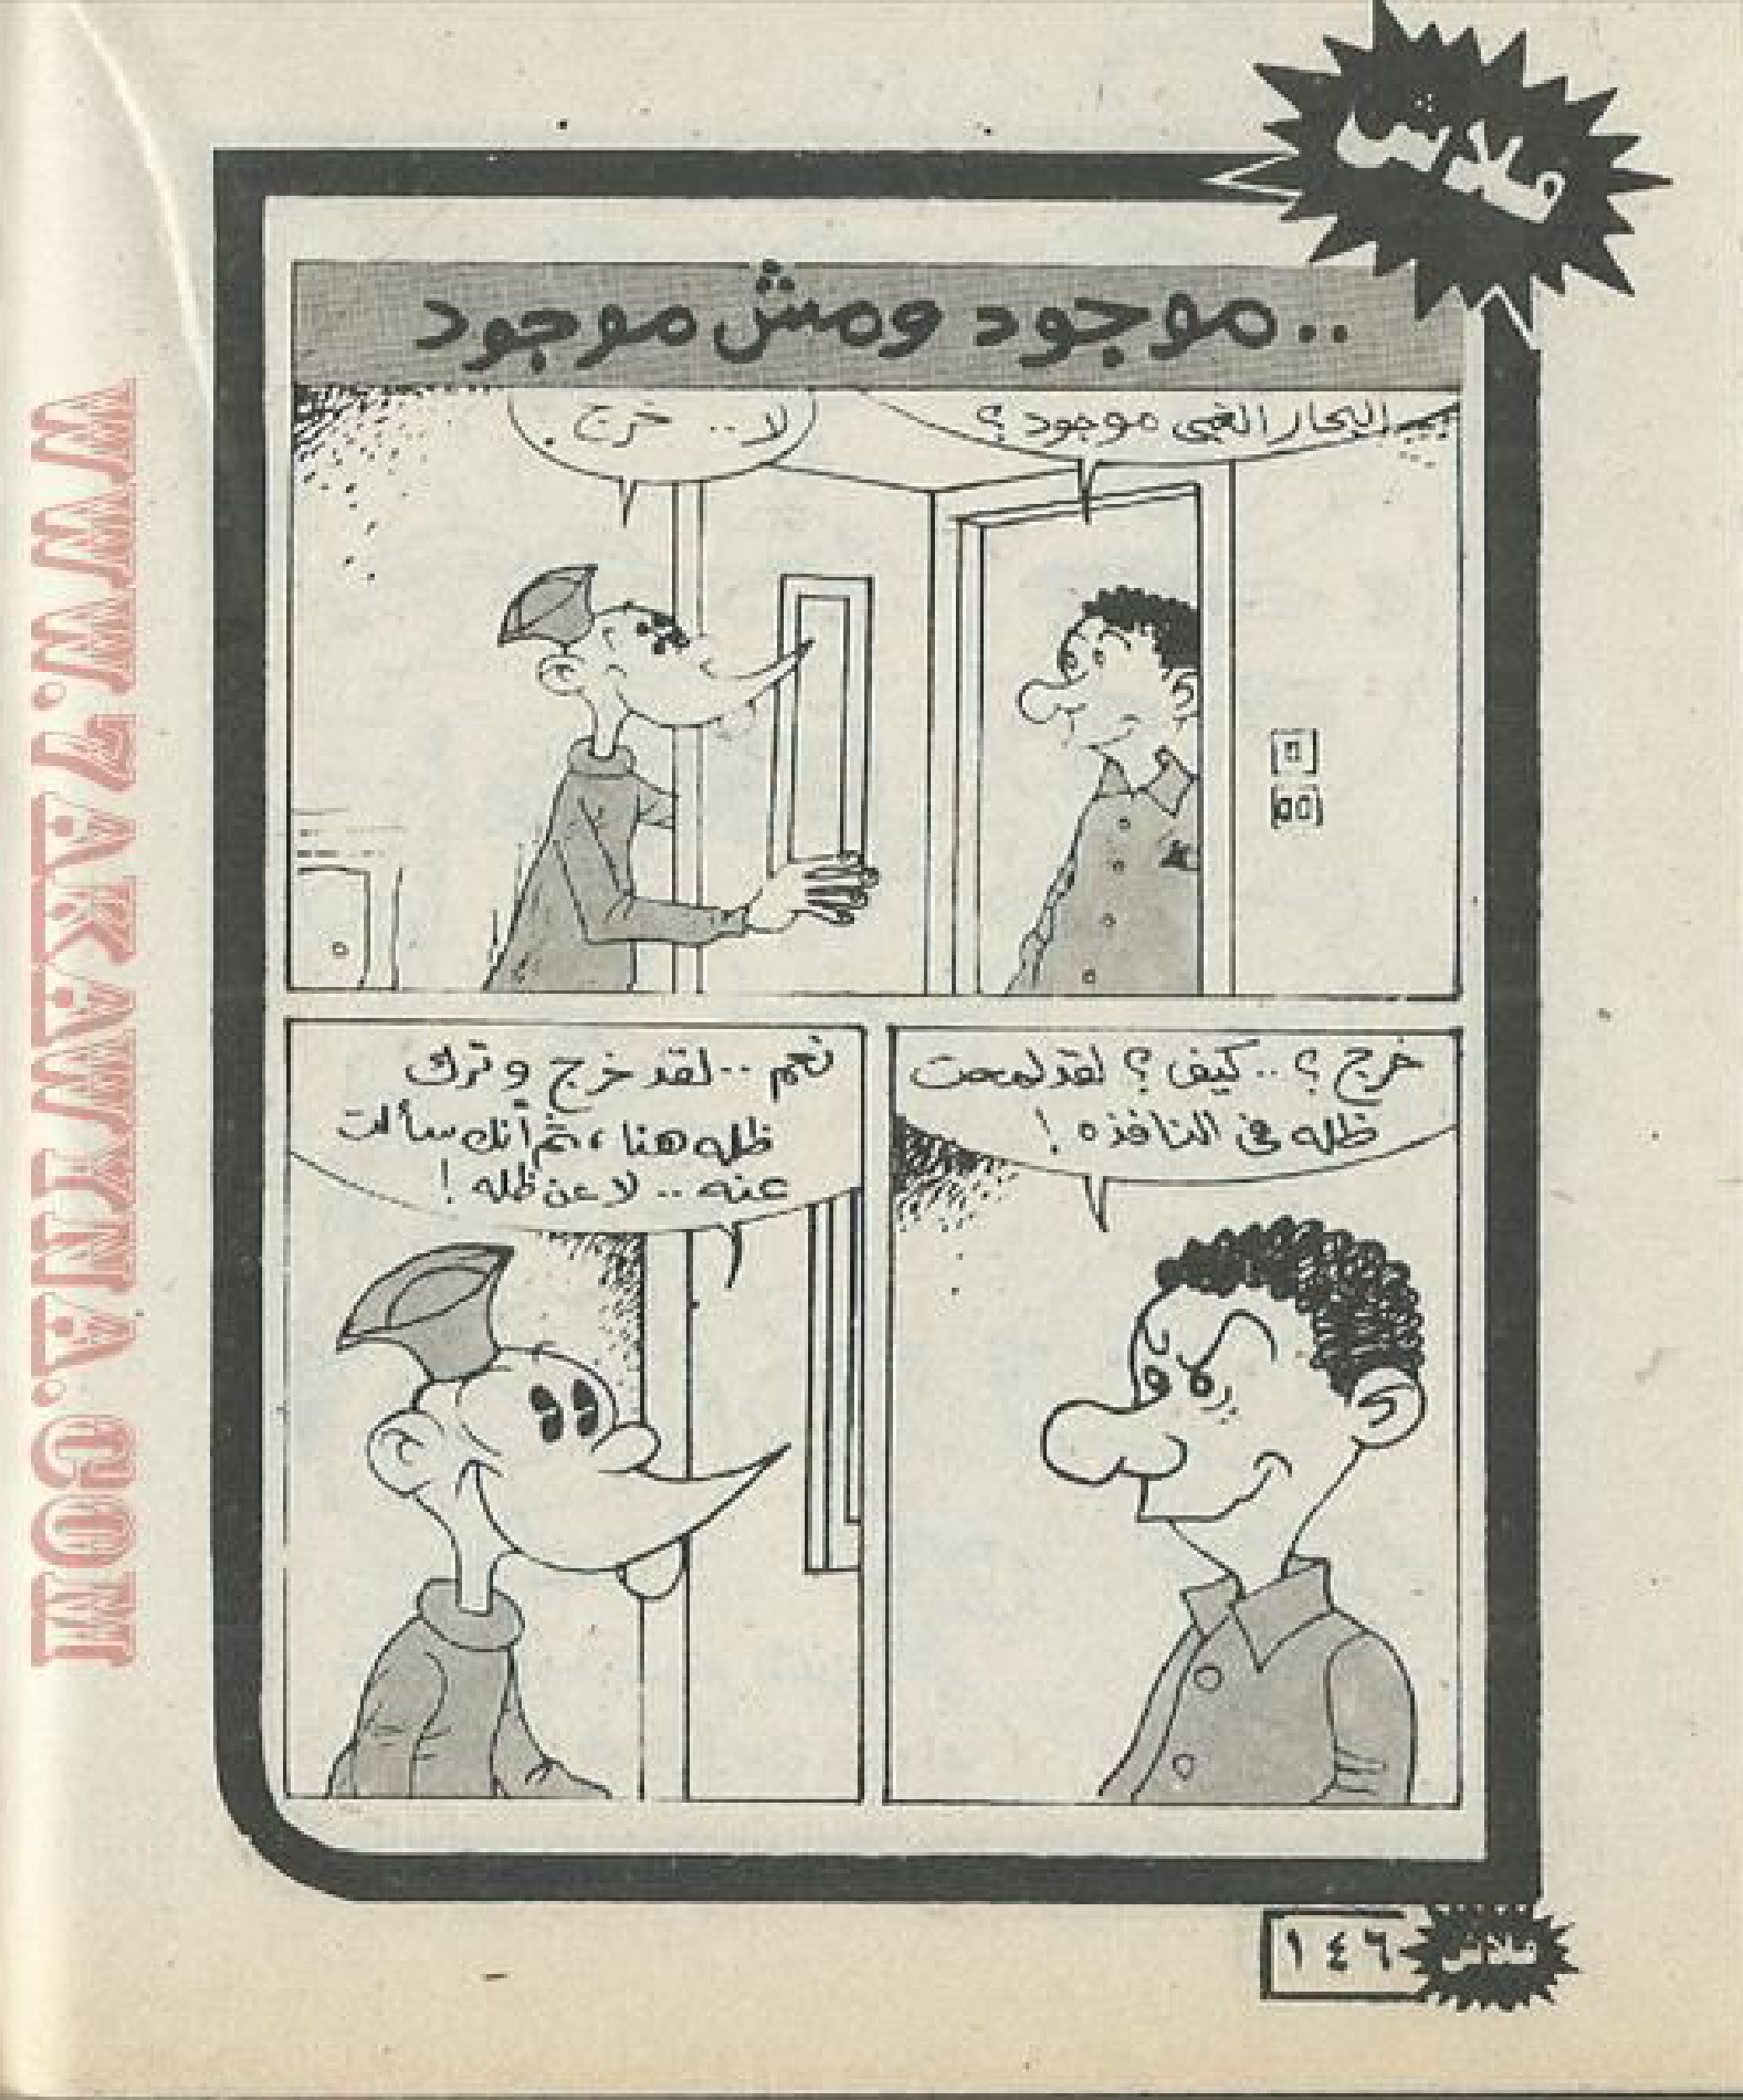 فلاش
..موجود ومش موجود
البحار الغبى موجود؟
لا.. خرج.
خرج؟.. كيف؟ لقد لمحت
ظله في النافذه!
نعم.. لقد خرج وترك
ظله هنا، ثم أنك سألت
عنه.. لا عن ظله!
فلاش
١٤٦
WWW.7AKAWINA.COM